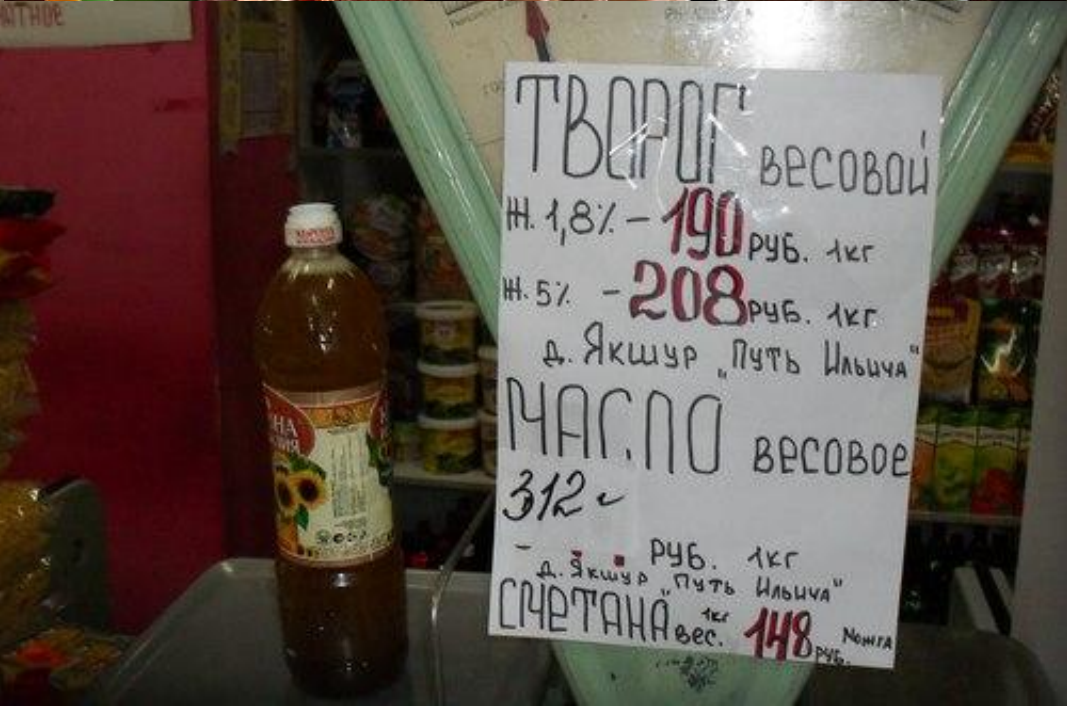 АТНОЕ
ТВОРОГ ВЕСОВОЙ
Ж. 1,8% – 190 РУБ. 1кг
Ж. 5% – 208 РУБ. 1кг
д. Якшур „Путь Ильича"
МАСЛО ВЕСОВОЕ
312
– РУБ. 1кг
д. Якшур „Путь Ильича"
СМЕТАНА вес. 1кг 148 руб. Можга